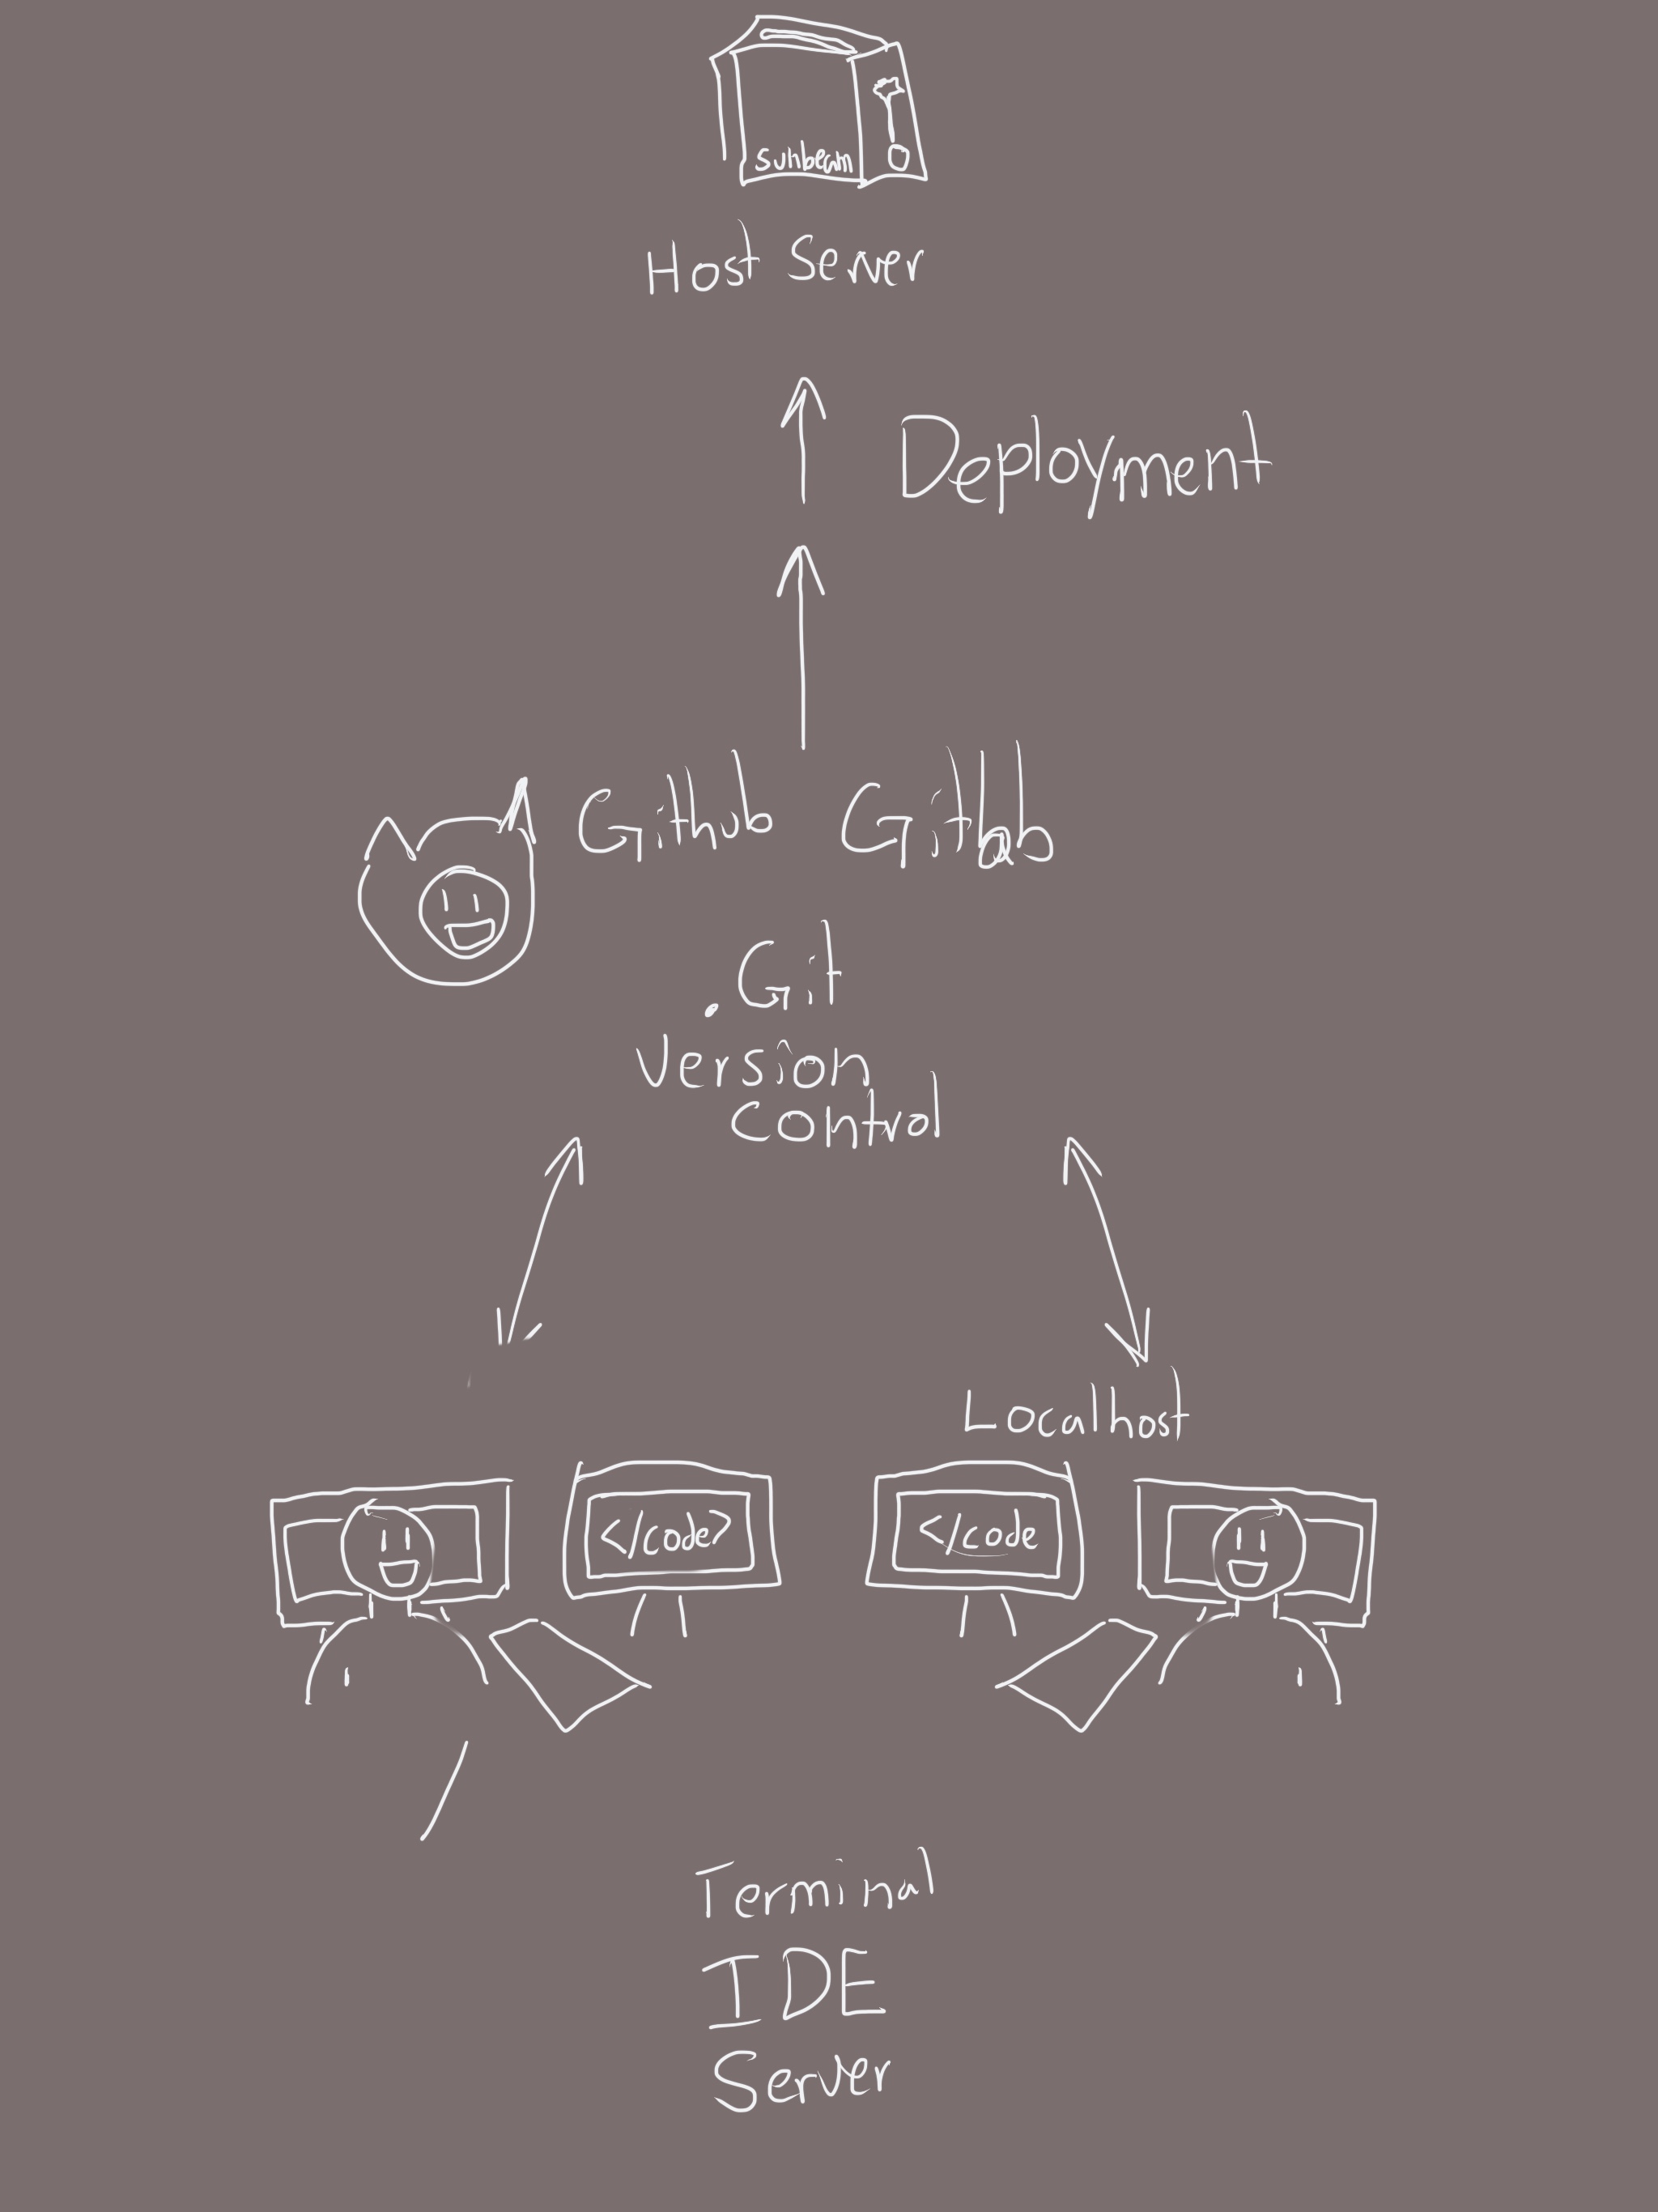 Sunbeam
Host Server
Deployment
Github Gitlab
.Git
Version
Control
Localhost
</Code>
</Code
Terminal
IDE
Server